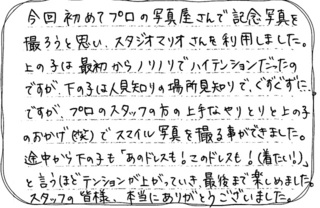 今回初めてプロの写真屋さんで記念写真を
撮ろうと思い、スタジオマリオさんを利用しました。
上の子は最初からノリノリでハイテンションだったの
ですが、下の子は人見知りの場所見知りで、ぐずぐずに…
ですが、プロのスタッフの方の上手なやりとりと上の子
のおかげ(笑)でスマイル写真を撮る事ができました。
途中から下の子も「あのドレスも!このドレスも!(着たい!)」
と言うほどテンションが上がっていき、最後まで楽しめました。
スタッフの皆様、本当にありがとうございました。